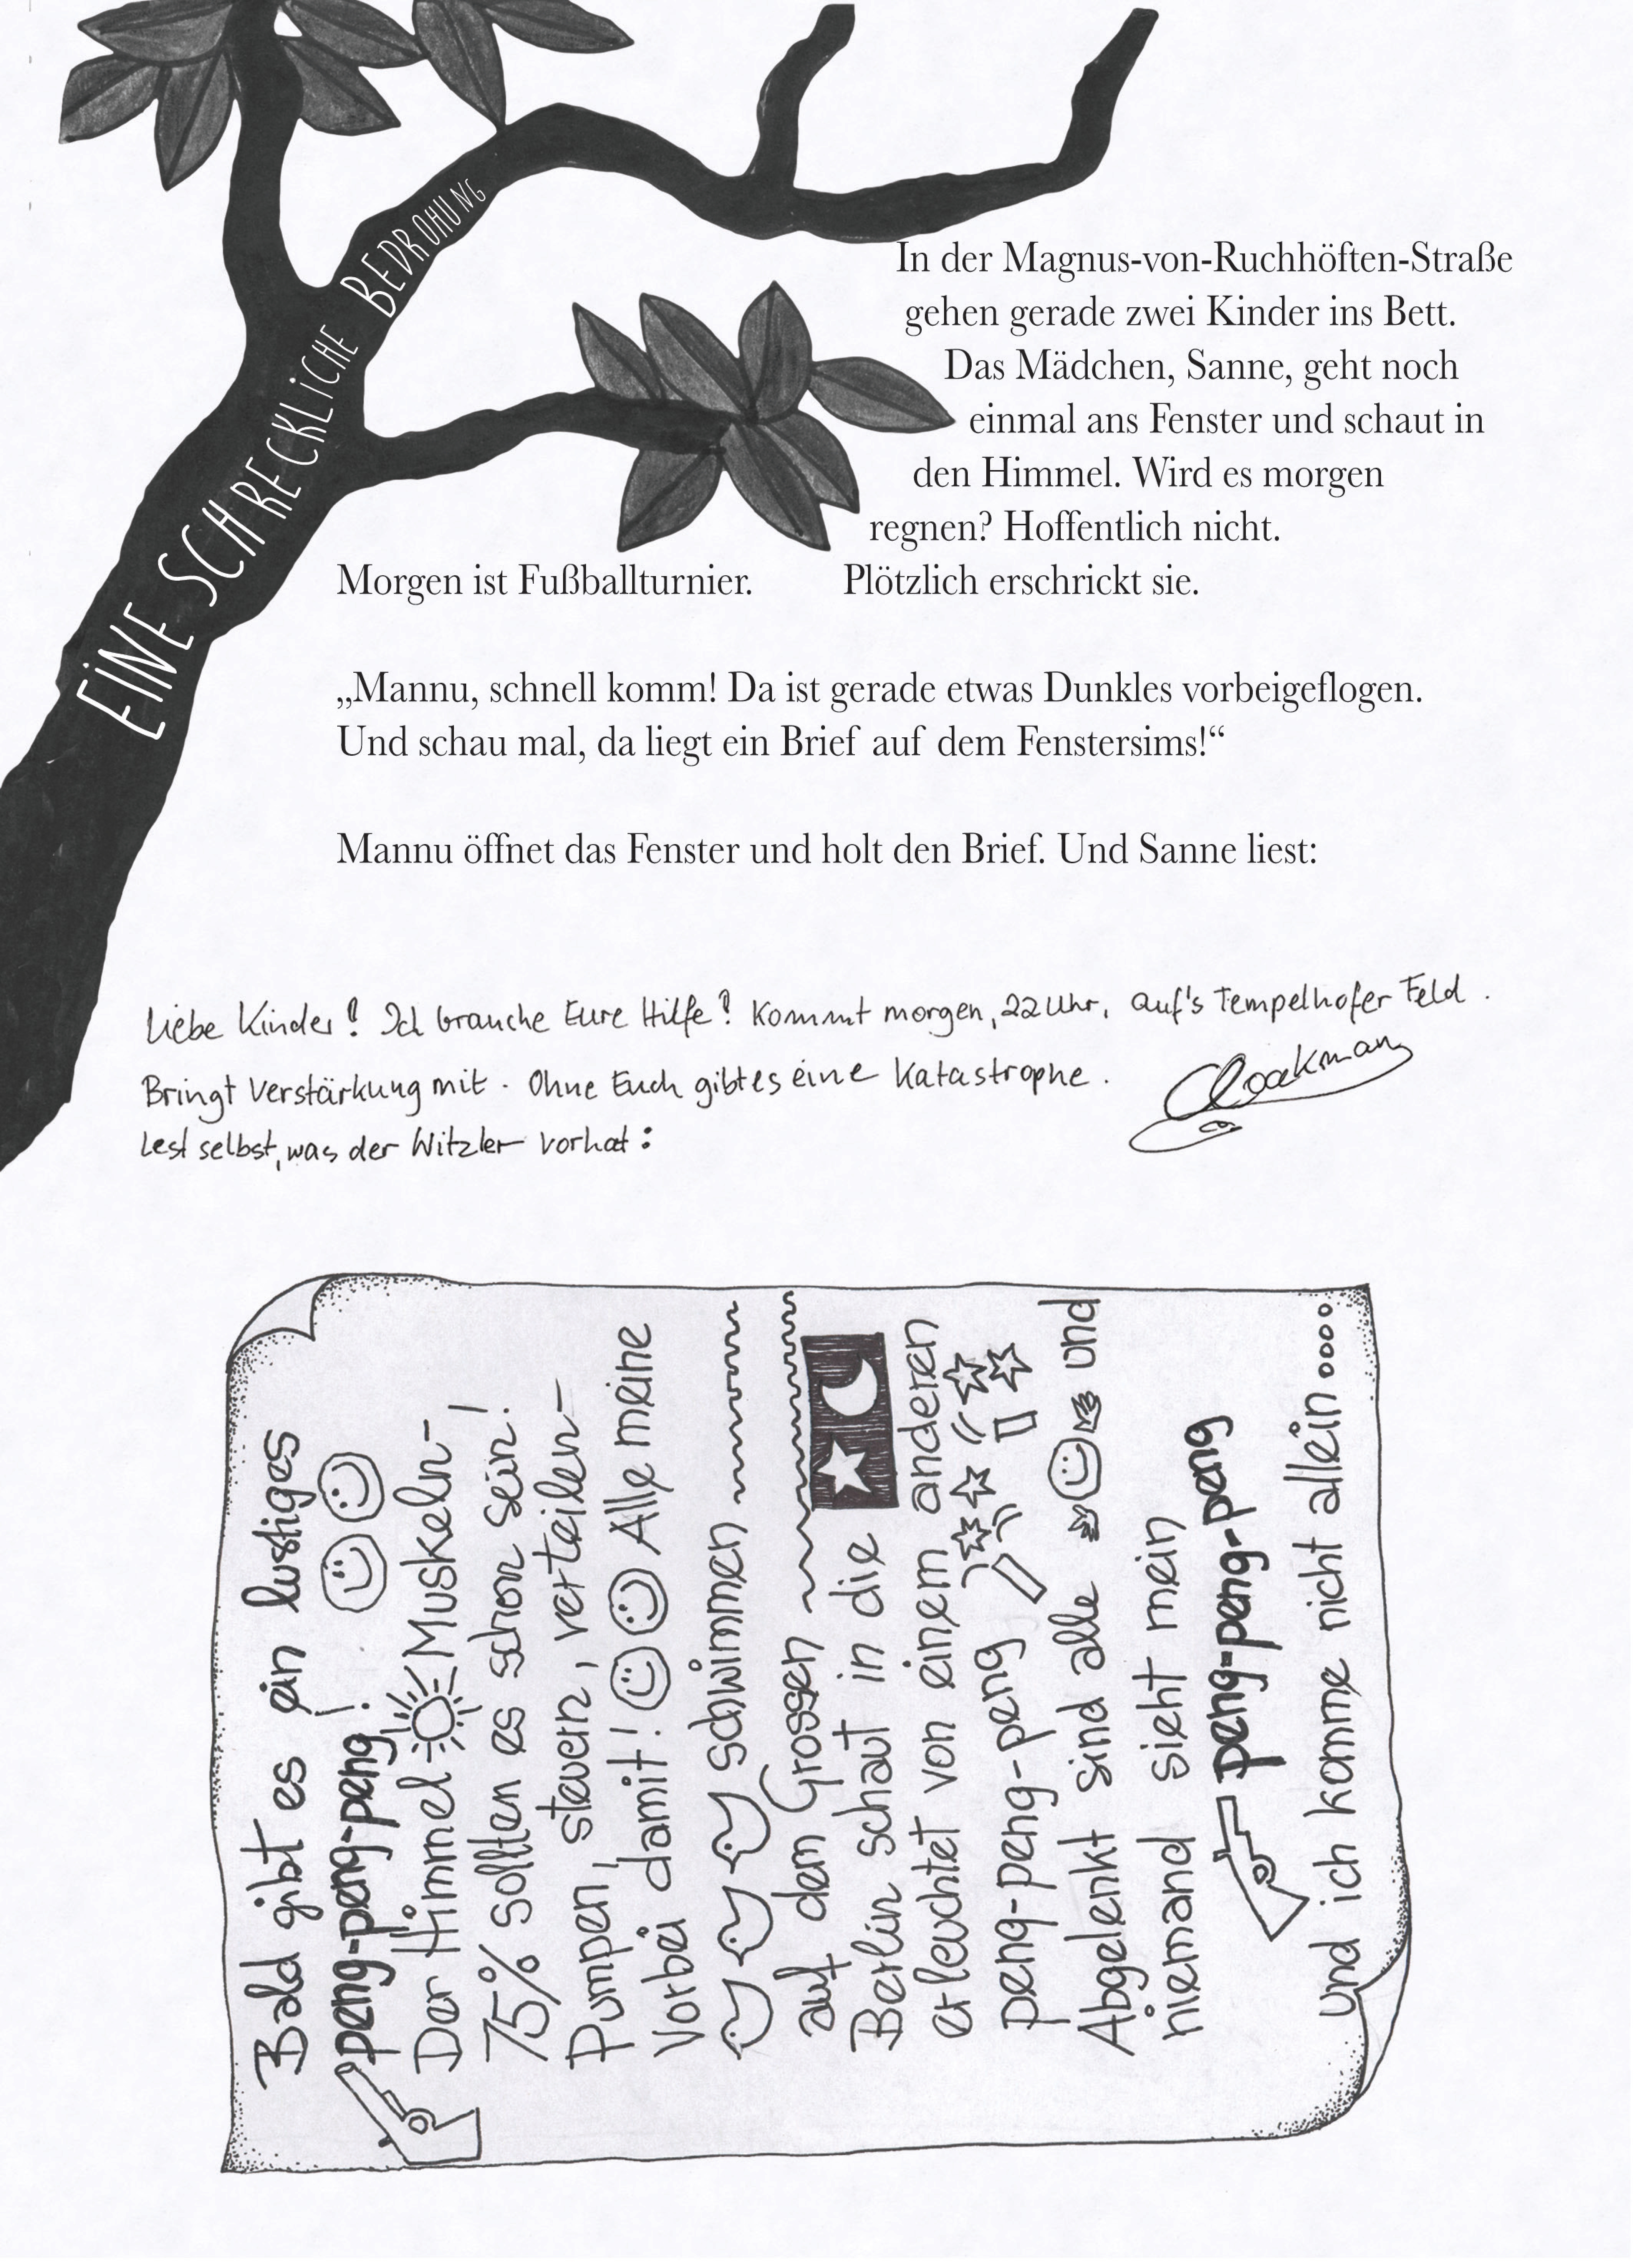 EINE SCHRECKLICHE BEDROHUNG
In der Magnus-von-Ruchhöften-Straße
gehen gerade zwei Kinder ins Bett.
Das Mädchen, Sanne, geht noch
einmal ans Fenster und schaut in
den Himmel. Wird es morgen
regnen? Hoffentlich nicht.
Morgen ist Fußballturnier. Plötzlich erschrickt sie.
„Mannu, schnell komm! Da ist gerade etwas Dunkles vorbeigeflogen.
Und schau mal, da liegt ein Brief auf dem Fenstersims!“
Mannu öffnet das Fenster und holt den Brief. Und Sanne liest:
Liebe Kinder! Ich brauche Eure Hilfe! Kommt morgen, 22 Uhr, auf's Tempelhofer Feld.
Bringt Verstärkung mit. Ohne Euch gibt es eine Katastrophe.
Cloakman
Lest selbst, was der Witzler vorhat:
Bald gibt es ein lustiges
peng-peng-peng!
Der Himmel Muskeln-
75% sollten es schon sein!
Pumpen, steuern, verteilen-
Vorbei damit! Alle meine
schwimmen
auf dem Grossen
Berlin schaut in die
erleuchtet von einem anderen
peng-peng-peng
Abgelenkt sind alle und
niemand sieht mein
peng-peng-peng
und ich komme nicht allein....